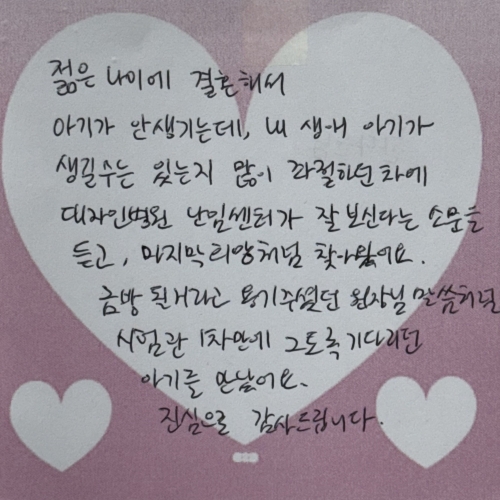 젊은 나이에 결혼해서
아기가 안생기는데, 내 생애 아기가
생길수는 있는지 많이 좌절하던차에
대자인병원 난임센터가 잘 보신다는 소문을
듣고, 마지막희망처럼 찾아왔어요.
금방 될거라고 용기주셨던 원장님 말씀처럼
시험관 1차만에 그토록 기다리던
아기를 만났어요.
진심으로 감사드립니다.